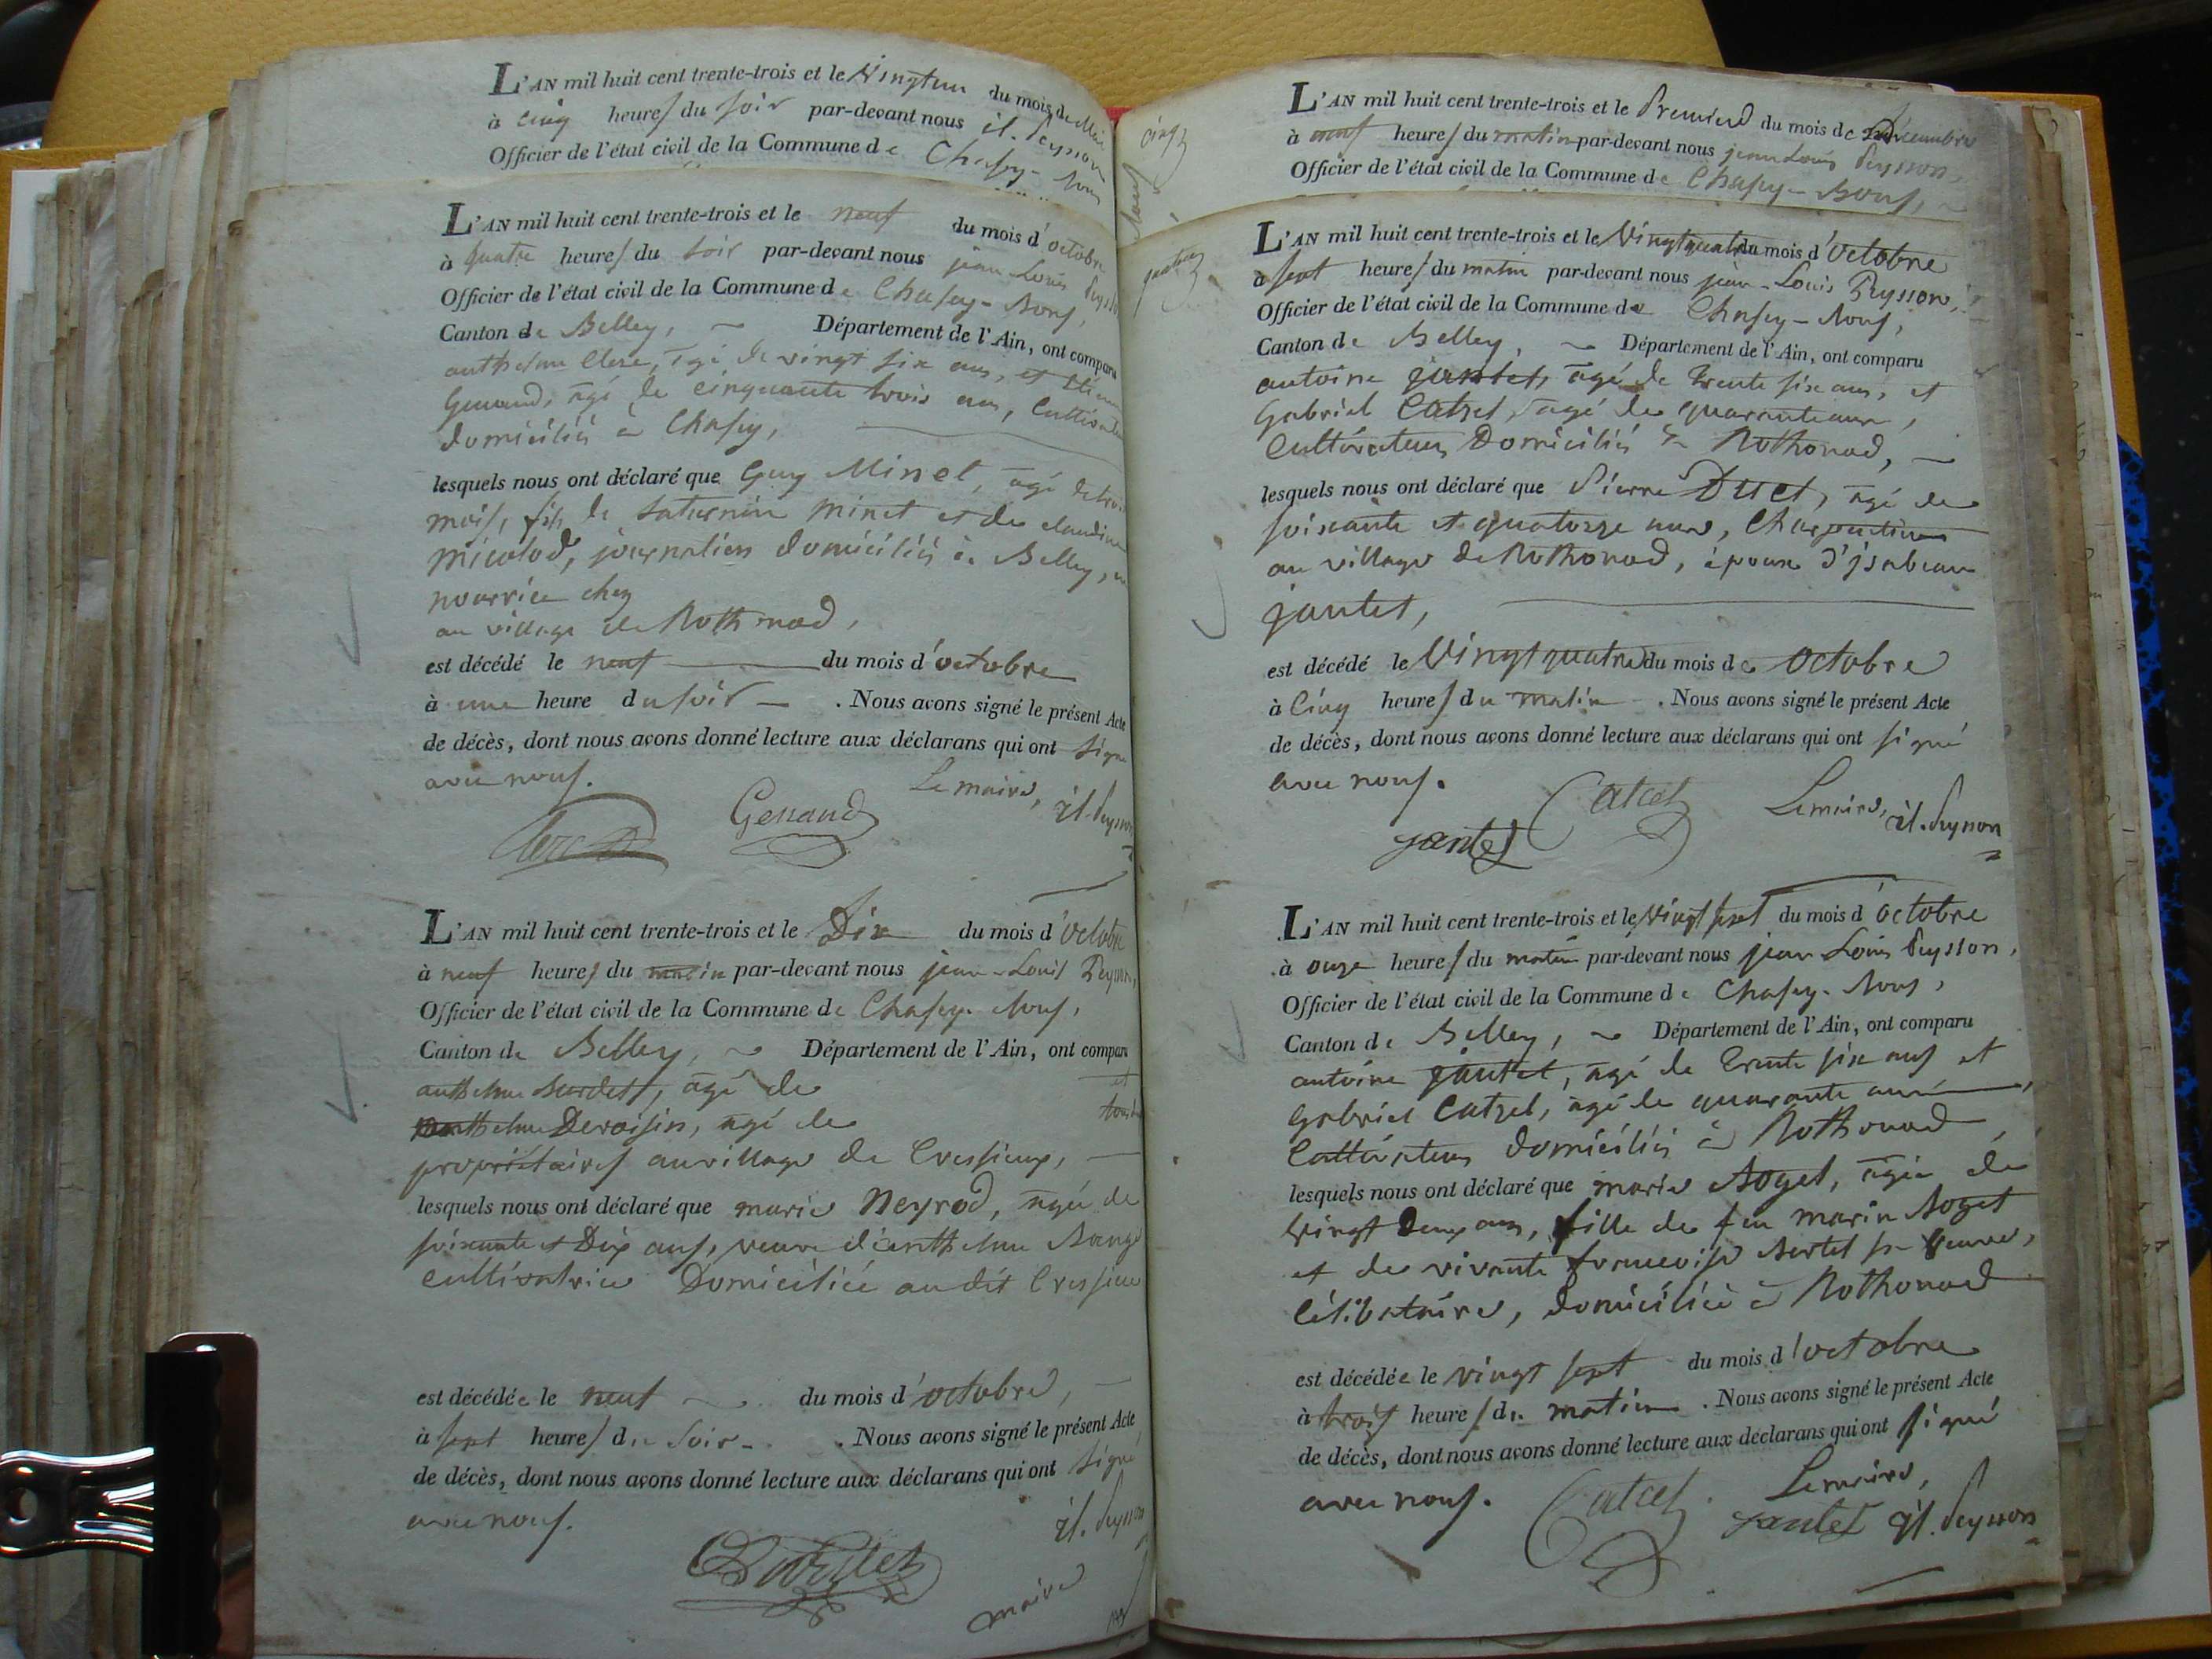 L'AN mil huit cent trente-trois et le Vingtun du mois de Mai
à cinq heures du soir par-devant nous j. l. Peysson
Officier de l'état civil de la Commune de Chasey-Bons
L'AN mil huit cent trente-trois et le neuf du mois d'octobre
à quatre heures du soir par-devant nous jean-Louis Peysson
Officier de l'état civil de la Commune de Chasey-Bons,
Canton de Belley, Département de l'Ain, ont comparu
anthelme Clerc, agé de vingt six ans, et
Genand, agé de cinquante trois ans, Cultivateurs
domiciliés à Chasey,
lesquels nous ont déclaré que Guy Minet, agé de trois
mois, fils de Saturnin Minet et de claudine
Micolod, journaliers domiciliés à Belley, en
nourrice chez
au village de Rothonod,
est décédé le neuf du mois d'octobre
à une heure du soir. Nous avons signé le présent Acte
de décès, dont nous avons donné lecture aux déclarans qui ont signé
avec nous.
Le maire,
Clerc Genand j. l. Peysson
L'AN mil huit cent trente-trois et le Dix du mois d'octobre
à neuf heures du matin par-devant nous jean-Louis Peysson,
Officier de l'état civil de la Commune de Chasey-Bons,
Canton de Belley, Département de l'Ain, ont comparu
anthelme Burdet, agé de et
anthelme Deroisin, agé de tous
propriétaires au village de Cressieux,
lesquels nous ont déclaré que marie Neyrod, agée de
soixante et Dix ans, veuve d'anthelme
cultivatrice Domiciliée audit Cressieu
est décédée le neuf du mois d'octobre,
à sept heures du soir. Nous avons signé le présent Acte
de décès, dont nous avons donné lecture aux déclarans qui ont signé
avec nous.
j. l. Peysson
maire
cinq
L'AN mil huit cent trente-trois et le Premier du mois de Décembre
à neuf heures du matin par-devant nous jean Louis Peysson,
Officier de l'état civil de la Commune de Chasey-Bons,
L'AN mil huit cent trente-trois et le Vingtquatre du mois d'octobre
à sept heures du matin par-devant nous jean-Louis Peysson,
Officier de l'état civil de la Commune de Chasey-Bons,
Canton de Belley, Département de l'Ain, ont comparu
antoine jantet, agé de trente six ans, et
Gabriel Catzel, agé de quarante ans,
Cultivateurs Domiciliés à Rothonod,
lesquels nous ont déclaré que Pierre Ducl, agé de
soixante et quatorze ans, Charpentier
au village de Rothonod, époux d'jsabeau
jantet,
est décédé le Vingtquatre du mois de octobre
à Cinq heures du matin. Nous avons signé le présent Acte
de décès, dont nous avons donné lecture aux déclarans qui ont signé
avec nous.
Catcel Le maire,
jantet j. l. Peysson
L'AN mil huit cent trente-trois et le Vingt sept du mois d'octobre
à onze heures du matin par-devant nous jean Louis Peysson,
Officier de l'état civil de la Commune de Chasey-Bons,
Canton de Belley, Département de l'Ain, ont comparu
antoine jantet, agé de trente six ans et
Gabriel Catzel, agé de quarante ans,
Cultivateurs domiciliés à Rothonod,
lesquels nous ont déclaré que marie Roget, agée de
vingt Deux ans, fille de feu marin Roget
et de vivante francoise Bertet sa veuve,
Célibataire, domiciliée à Rothonod
est décédée le vingt sept du mois d'octobre
à trois heures du matin. Nous avons signé le présent Acte
de décès, dont nous avons donné lecture aux déclarans qui ont signé
avec nous. Catcel Le maire,
jantet j. l. Peysson